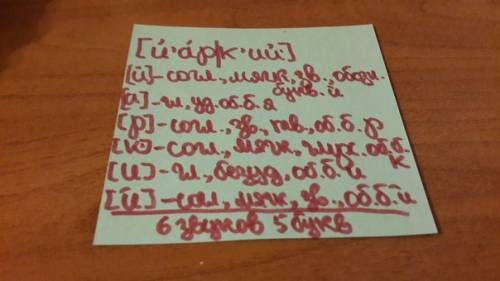 [й'áрк'ий']
[й]-согл., мягк, зв., обозн.
букв. й
[а]-гл, уд. об. б. а
[р]-согл., зв., тв., об. б. р
[к]-согл., мягк, глух. об. б.
к
[и]-гл, безуд, об. б. и
[й]-согл, мягк, зв., об. б. й
6 звуков 5 букв